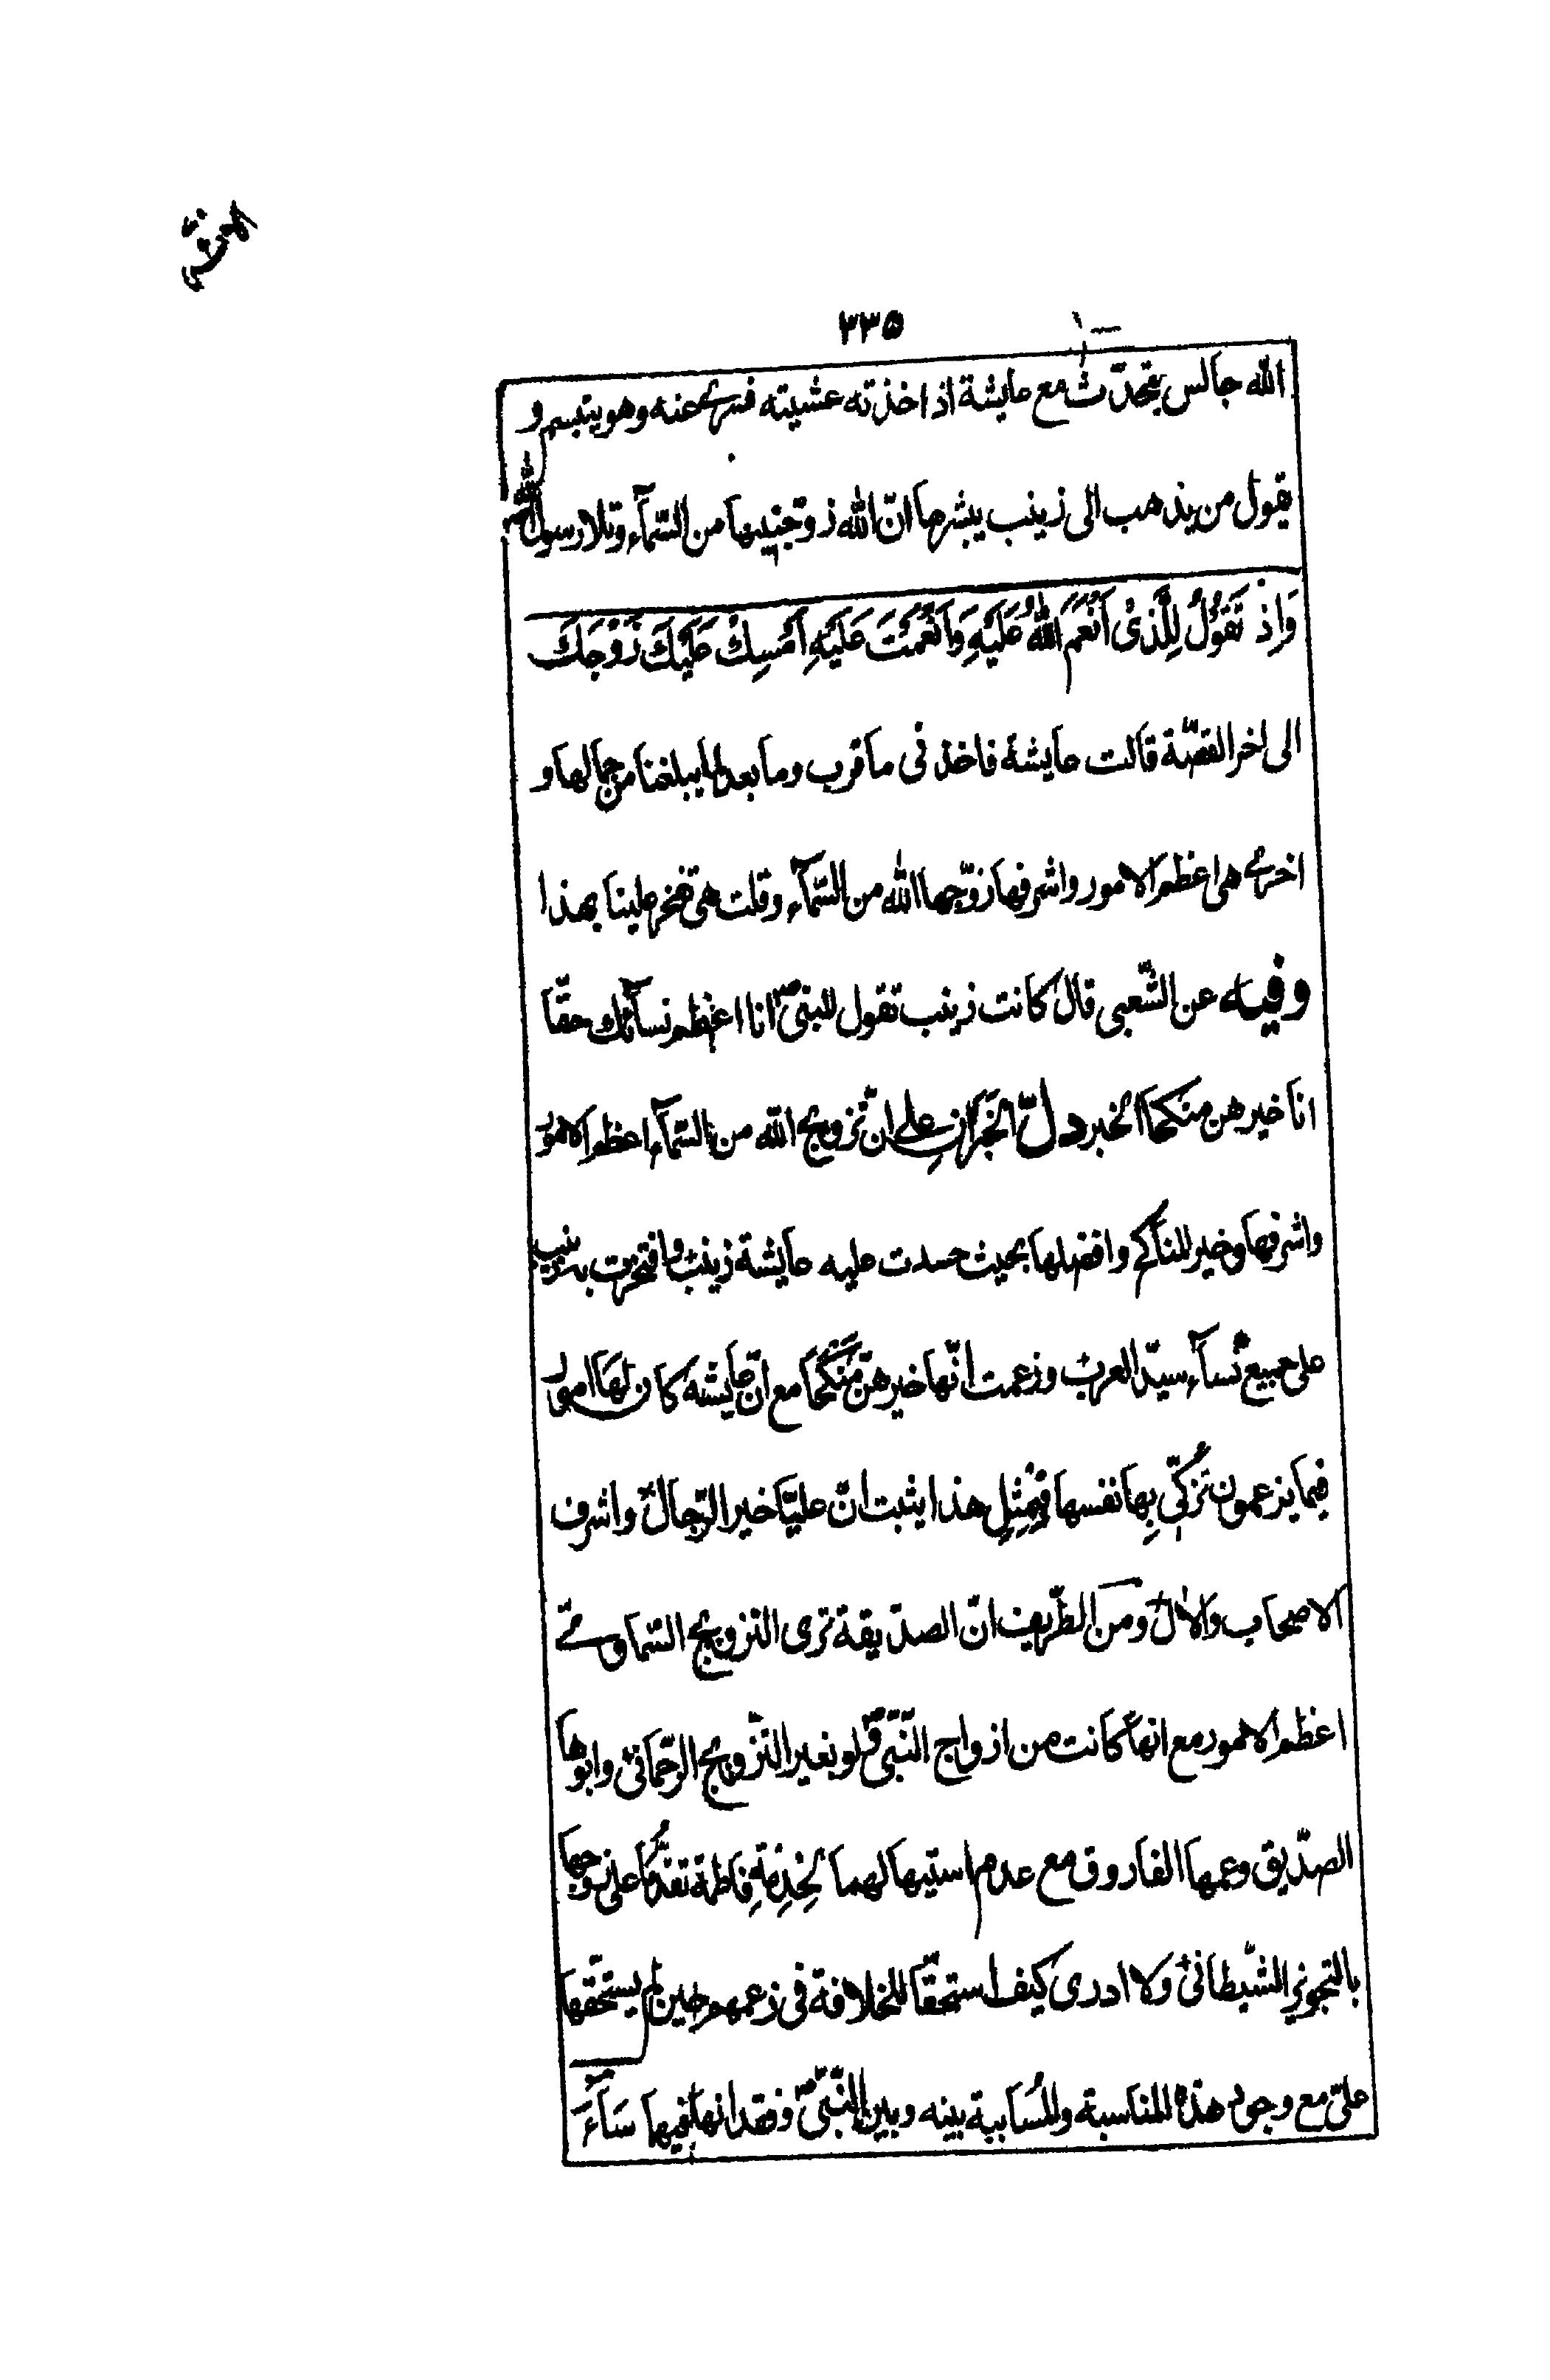 ٢٣٥
الله جالس يتحدّث مع عايشة اذ اخذته غشيته فسرى عنه وهو يتبسم و
يقول من يذهب الى زينب يبشرها انّ الله زوّجنيها من السّمآء وتلا رسول الله
وَاِذْ تَقُوْلُ لِلَّذِىْ اَنْعَمَ اللهُ عَلَيْهِ وَاَنْعَمْتَ عَلَيْهِ اَمْسِكْ عَلَيْكَ زَوْجَكَ
الى اخر القصّة قالت عايشة فاخذ فى ما قرب وما بعد لما يبلغنا من جمالها و
اخرى هى اعظم الامور واشرفها زوّجها الله من السّمآء وقلت هى تفخر علينا بهذا
وفيه عن الشّعبى قال كانت زينب تقول للنبىّ انا اعظم نسآئك حقّا
انا خيرهن منكحا الخبر دلّ الخبران على انّ تزويج الله من السّمآء اعظم الامور
واشرفها وخير المناكح وافضلها بحيث حسدت عليه عايشة زينب وافتخرت به زينب
على جميع نسآء سيّد العرب وزعمت انّها خيرهنّ مَنْكَحًا مع انّ عايشه كان لها امور
فيما يزعمون تُزَكّى بِها نفسها فبمثل هذا يثبت انّ عليّا خير الرّجال واشرف
الاصحاب والال ومن الظّريف انّ الصدّيقة ترى التزويج السّماوىّ
اعظم الامور مع انها كانت من ازواج النّبىّ ولو بغير التّزويج الرّحمانىّ وابوها
الصدّيق وعمها الفاروق مع عدم استيهالهما لخِذْمَةِ فاطمة تقدّما على زوجها
بالتجويز الشّيطانىّ ولا ادرى كيف استحقّا للخلافة فى زعمهم حين لم يستحقّها
علىّ مع وجود هذه المناسبة والمُسَابية بينه وبين النّبىّ وفقدانها فيهما سَآءَ